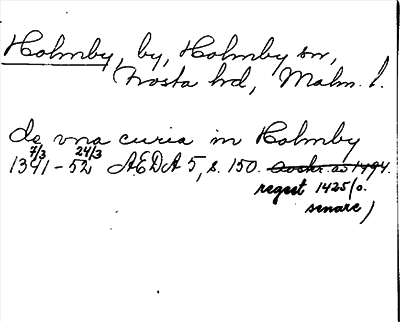 Holmby, by, Holmby sn,
Frosta hd, Malm. l.
de vna curia in Holmby
7/3 24/3
1341-52 ÆDA 5, s. 150. Avskr. av 1494.
regest 1425 (o.
senare)